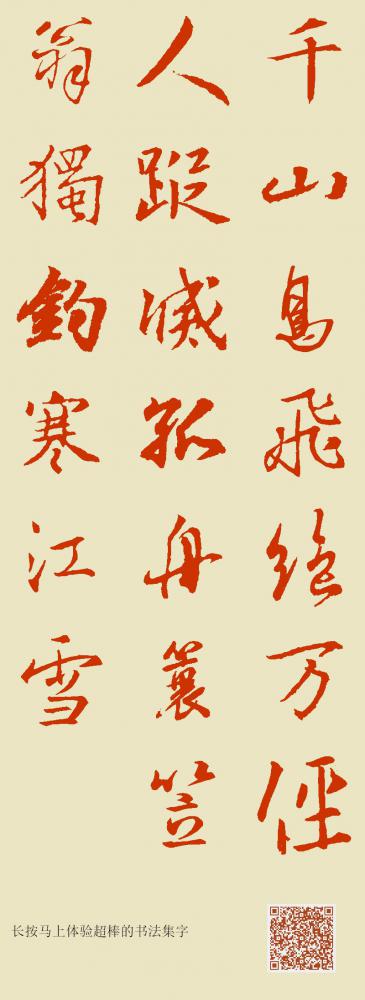 千山鳥飛絶万径
人蹤滅孤舟簑笠
翁獨釣寒江雪
长按马上体验超棒的书法集字